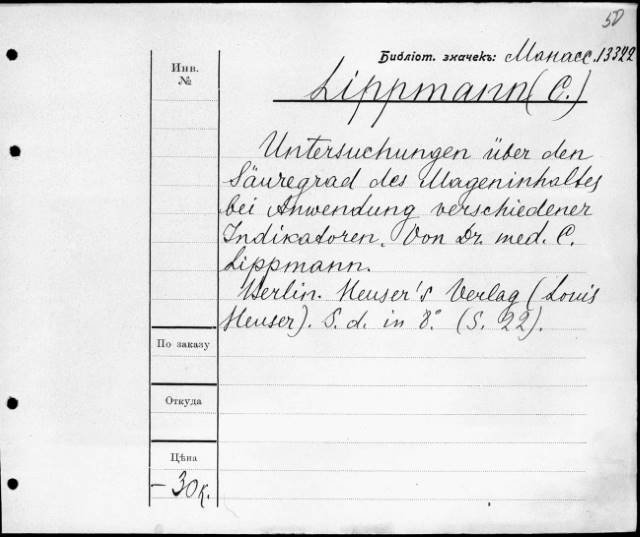 50
Библіот. значекъ: Манасс. 13342
Инв.
№
Lippmann (C.)
Untersuchungen über den
Säuregrad des Mageninhaltes
bei Anwendung verschiedener
Indikatoren. Von Dr. med. C.
Lippmann.
Berlin. Heuser's Verlag (Louis
Heuser). S. d. in 8.º (S. 22).
По заказу
Откуда
Цѣна
— 30 к.